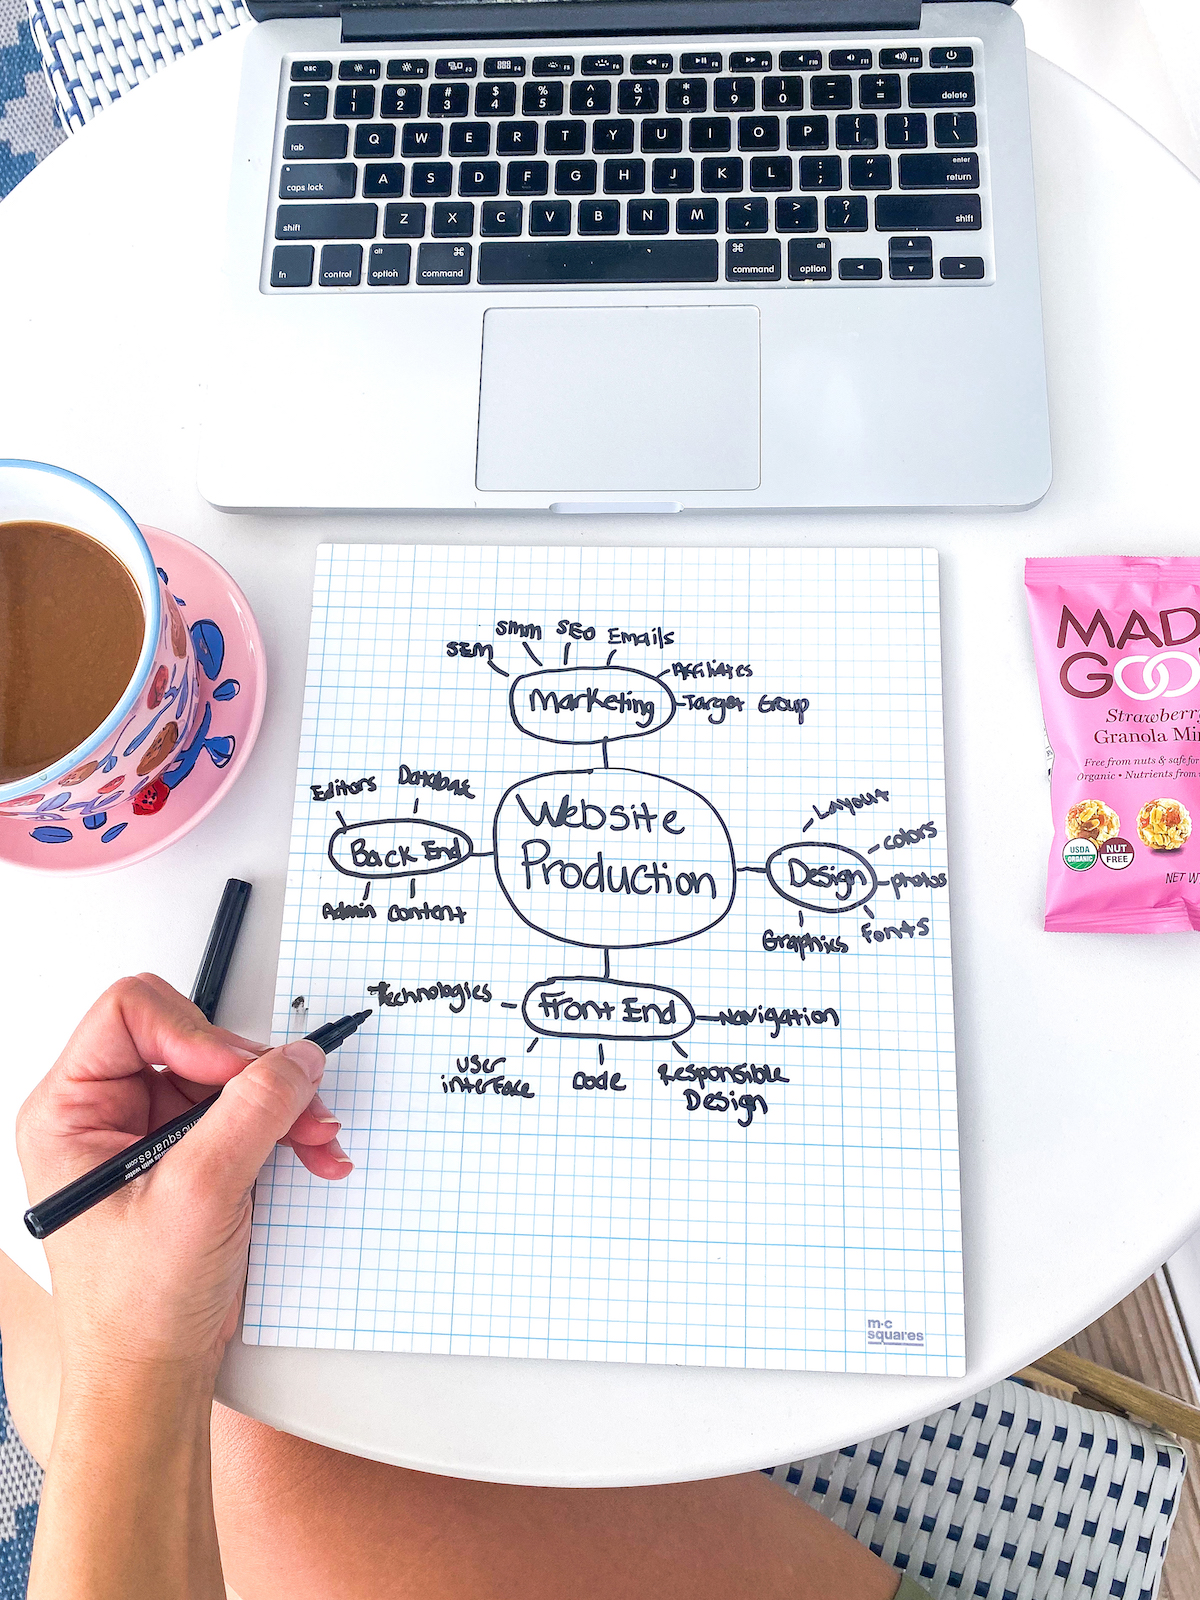 esc F1 F2 F3 F4 F5 F6 F7 F8 F9 F10 F11 F12
~ ` ! 1 @ 2 # 3 $ 4 % 5 ^ 6 & 7 * 8 ( 9 ) 0 _ - + = delete
tab Q W E R T Y U I O P { [ } ] | \
caps lock A S D F G H J K L : ; " ' enter return
shift Z X C V B N M < , > . ? / shift
fn control alt option ⌘ command ⌘ command alt option
SEM
smm
SEO
Emails
Affiliates
Marketing
Target Group
Editors
Database
Back End
Admin
Content
Website
Production
Layout
colors
Design
photos
Graphics
Fonts
Technologies
Front End
Navigation
user
interface
code
Responsible
Design
m·c
squares
mcsquares.com
with water
MAD
GOO
Strawberry
Granola Mi
Free from nuts & safe for
Organic • Nutrients from
USDA
ORGANIC
NUT
FREE
NET W